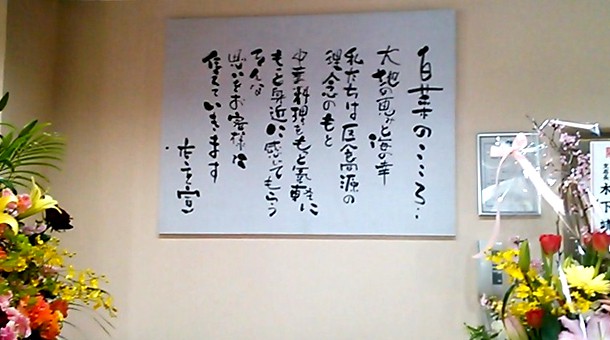 白菜のこころ…
大地の恵みと海の幸
私たちは医食同源の
理念のもと
中華料理をもっと気軽に
もっと身近に感じてもらう
そんな
思いをお客様に
伝えていきます
木下